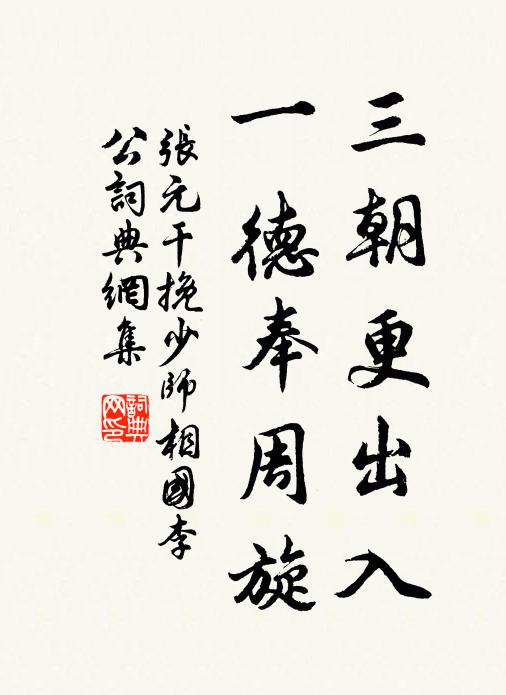 三朝更出入
一德奉周旋
張元干挽少師相國李
公詞典網集
詞典網印